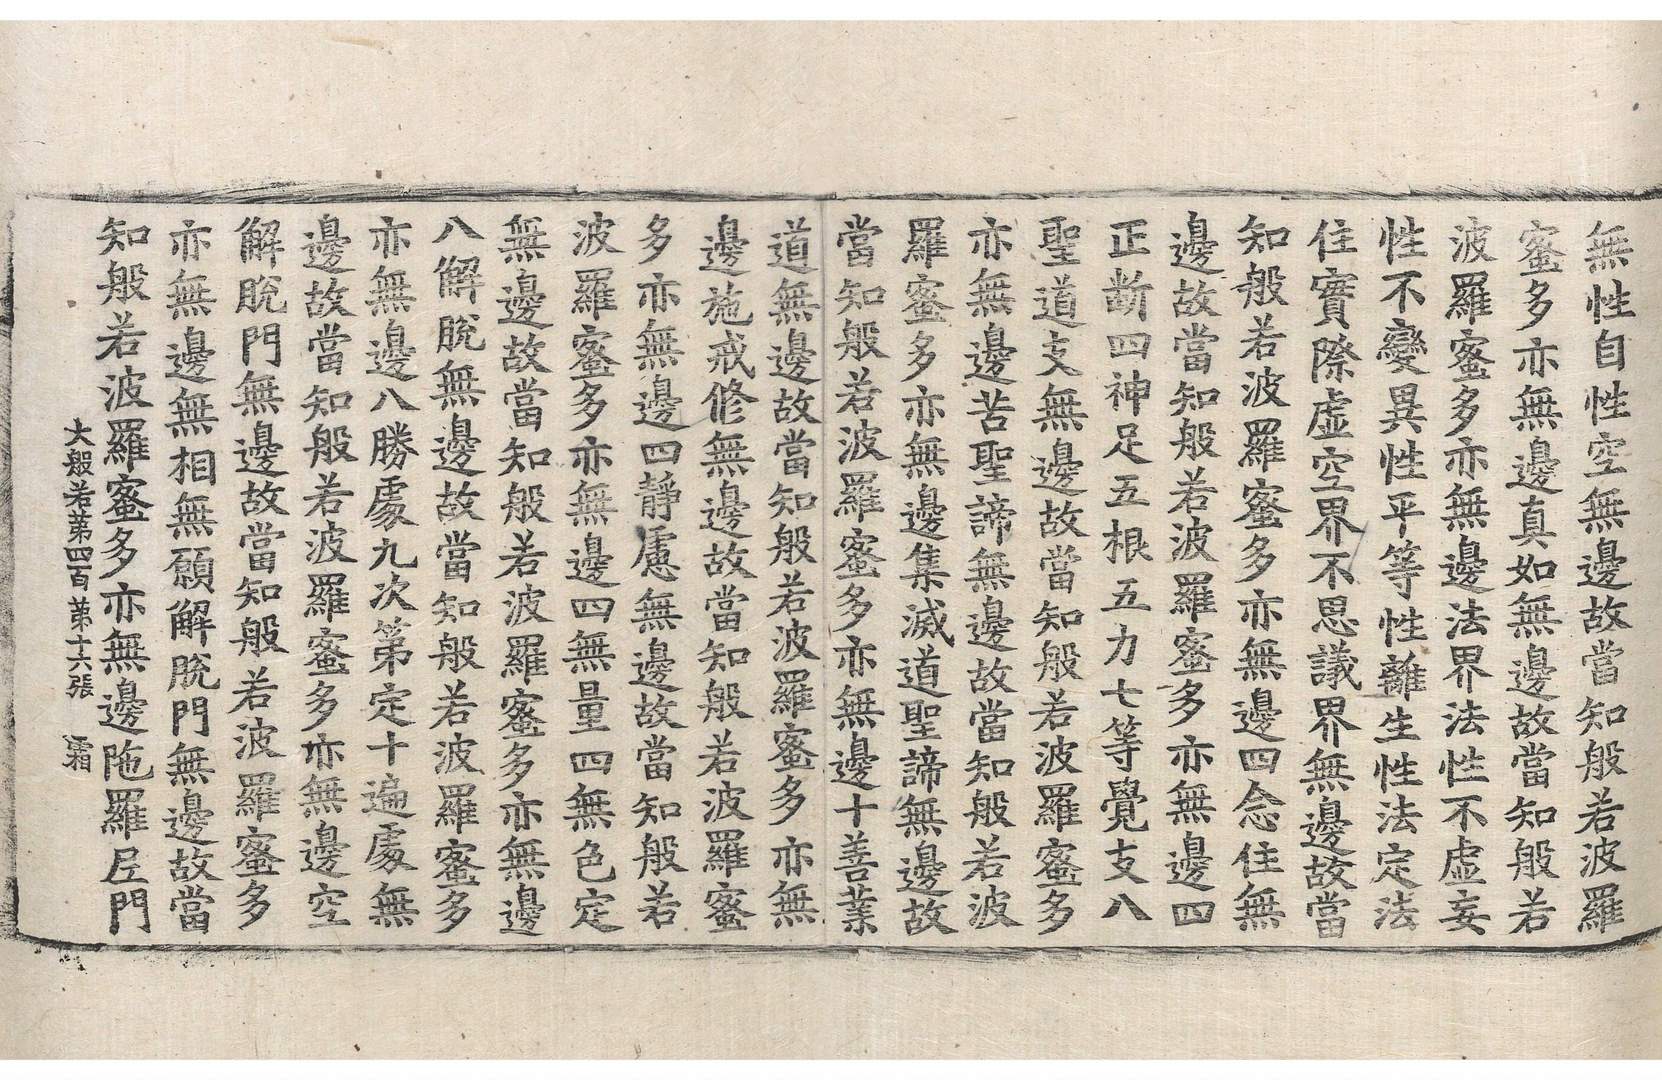 無性自性空無邊故當知般若波羅
蜜多亦無邊真如無邊故當知般若
波羅蜜多亦無邊法界法性不虛妄
性不變異性平等性離生性法定法
住實際虛空界不思議界無邊故當
知般若波羅蜜多亦無邊四念住無
邊故當知般若波羅蜜多亦無邊四
正斷四神足五根五力七等覺支八
聖道支無邊故當知般若波羅蜜多
亦無邊苦聖諦無邊故當知般若波
羅蜜多亦無邊集滅道聖諦無邊故
當知般若波羅蜜多亦無邊十善業
道無邊故當知般若波羅蜜多亦無
邊施戒修無邊故當知般若波羅蜜
多亦無邊四靜慮無邊故當知般若
波羅蜜多亦無邊四無量四無色定
無邊故當知般若波羅蜜多亦無邊
八解脫無邊故當知般若波羅蜜多
亦無邊八勝處九次第定十遍處無
邊故當知般若波羅蜜多亦無邊空
解脫門無邊故當知般若波羅蜜多
亦無邊無相無願解脫門無邊故當
知般若波羅蜜多亦無邊陁羅尼門
大般若第四百 第十六張 霜